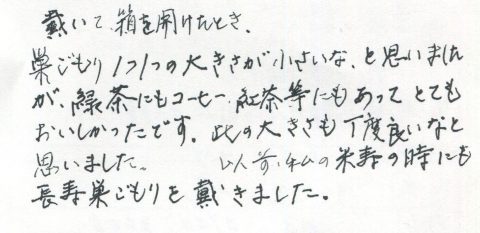 戴いて、箱を開けたとき、
巣ごもり1つ1つの大きさが小さいな、と思いました
が、緑茶にもコーヒー、紅茶等にもあって とても
おいしかったです。此の大きさも丁度良いなと
思いました。 以前、私の米寿の時にも
長寿巣ごもりを戴きました。